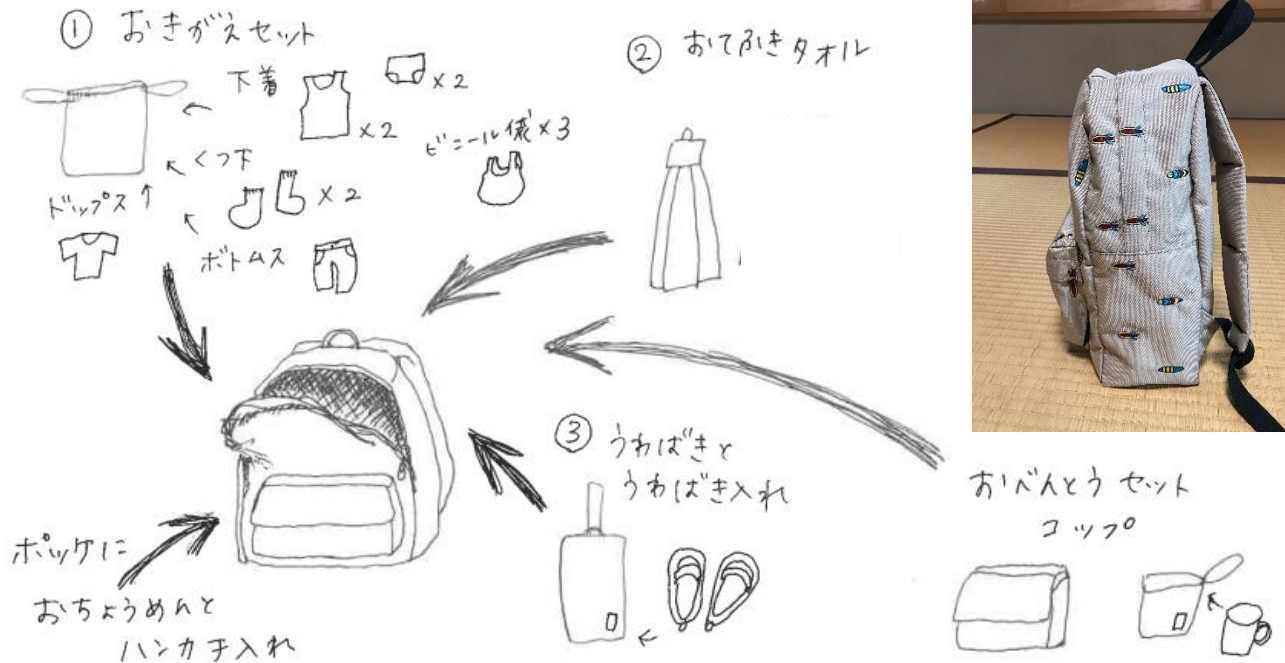 ① おきがえセット
下着
×2
×2
ビニール袋×3
くつ下
×2
トップス
ボトムス
② おてふきタオル
③ うわばきと
うわばき入れ
おべんとうセット
コップ
ポッケに
おちょうめんと
ハンカチ入れ